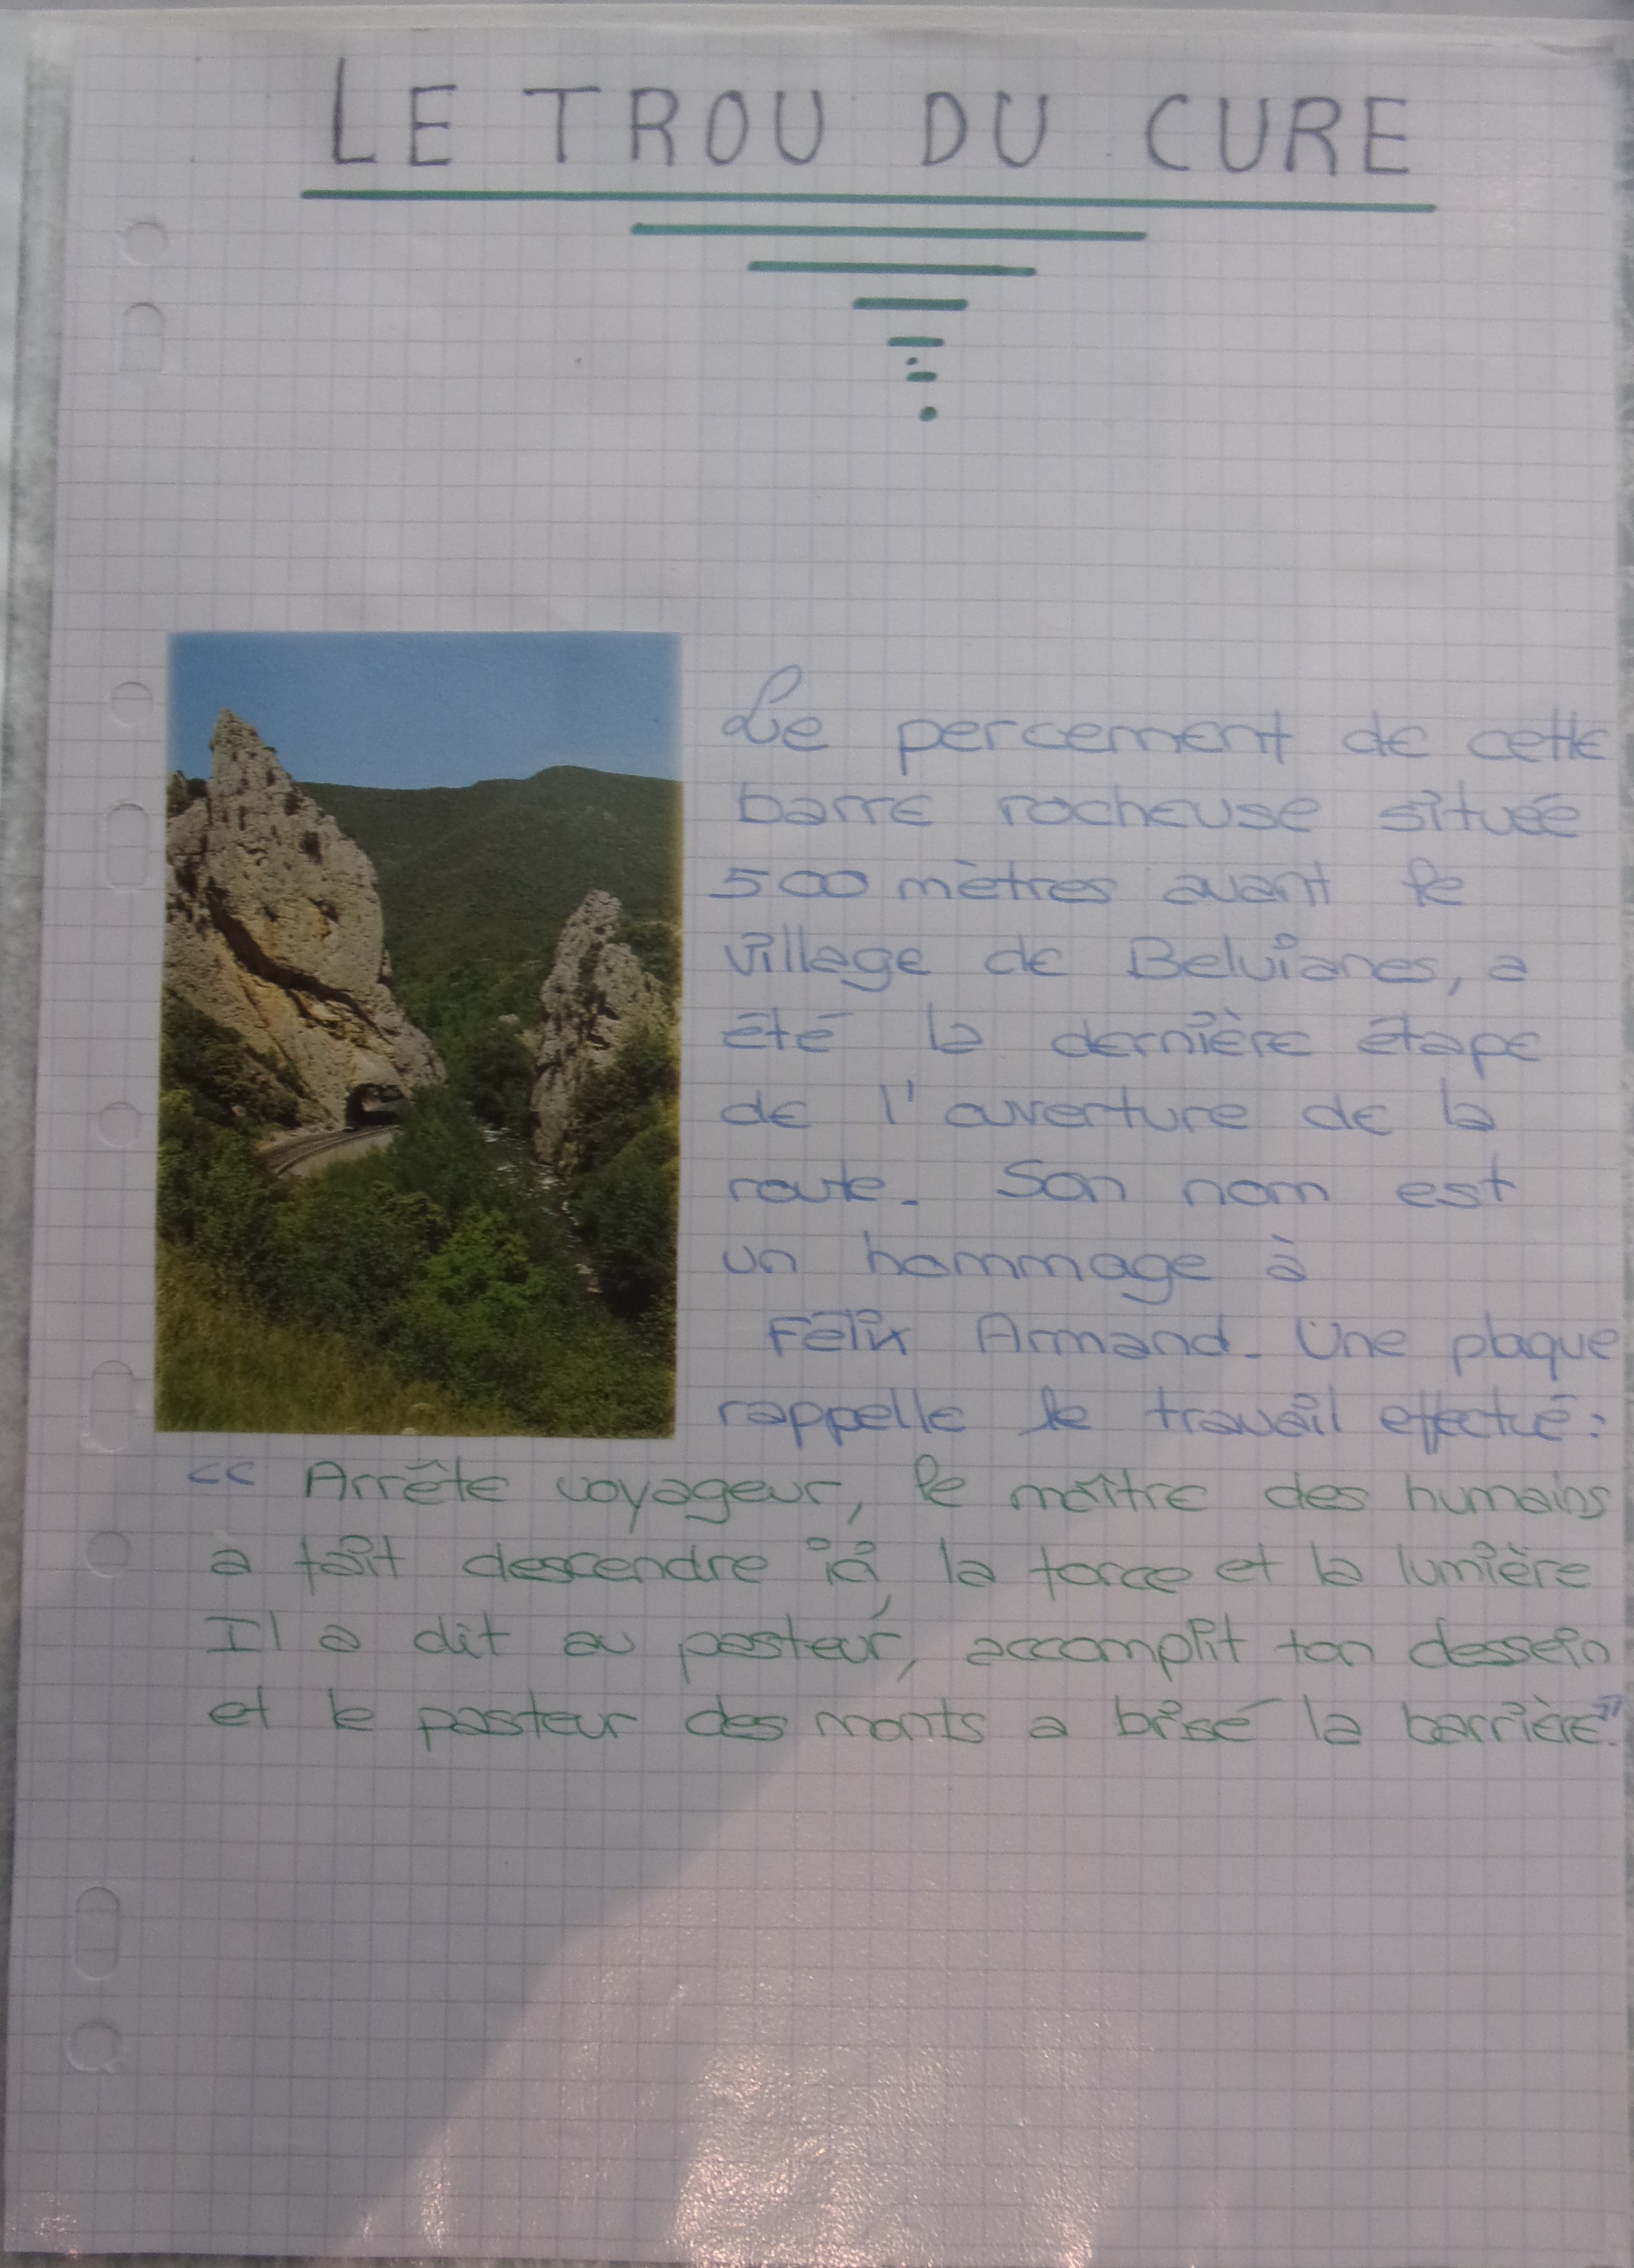 LE TROU DU CURE
Le percement de cette
barre rocheuse située
500 mètres avant le
village de Belvianes, a
été la dernière étape
de l'ouverture de la
route. Son nom est
un hommage à
Félix Armand. Une plaque
rappelle le travail effectué :
<< Arrête voyageur, le maître des humains
a fait descendre ici, la force et la lumière
Il a dit au pasteur, accomplit ton dessein
et le pasteur des monts a brisé la barrière."